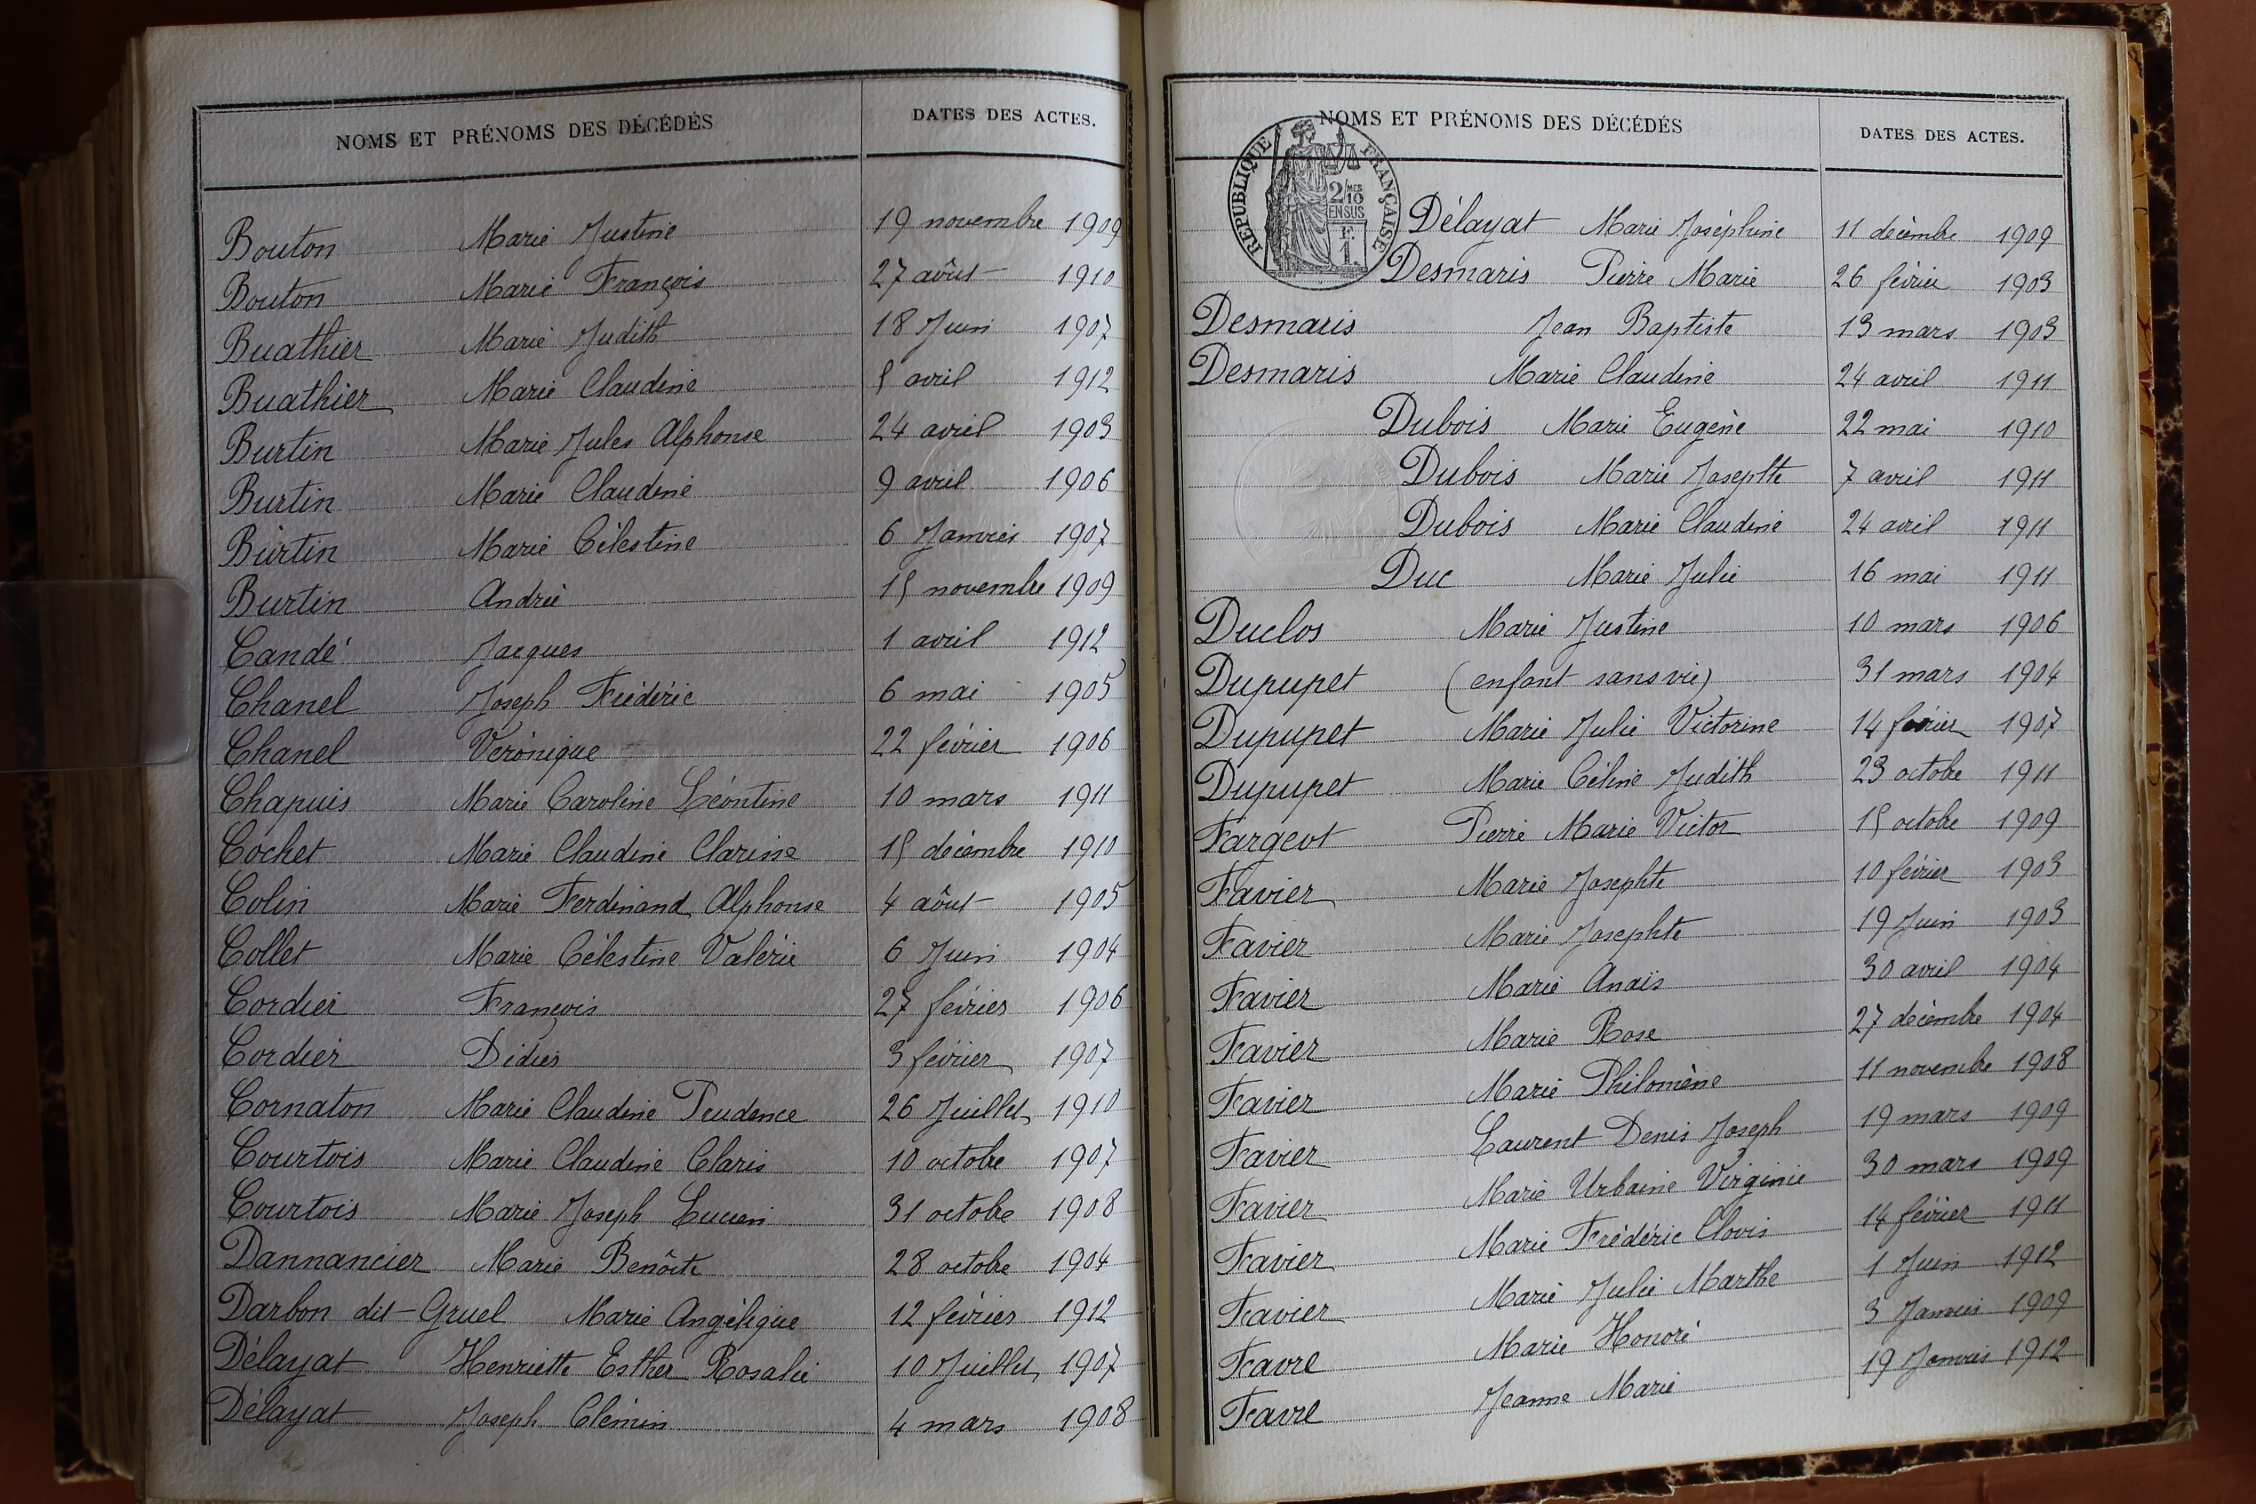 NOMS ET PRÉNOMS DES DÉCÉDÉS DATES DES ACTES.
Bouton Marie Justine 19 novembre 1909
Bouton Marie François 27 août 1910
Buathier Marie Judith 18 Juin 1907
Buathier Marie Claudine 5 avril 1912
Burtin Marie Jules Alphonse 24 avril 1903
Burtin Marie Claudine 9 avril 1906
Burtin Marie Célestine 6 Janvier 1907
Burtin André 15 novembre 1909
Candé Jacques 1 avril 1912
Chanel Joseph Frédéric 6 mai 1905
Chanel Véronique 22 février 1906
Chapuis Marie Caroline Léontine 10 mars 1911
Cochet Marie Claudine Clarisse 15 décembre 1910
Colin Marie Ferdinand Alphonse 4 août 1905
Collet Marie Célestine Valérie 6 Juin 1904
Cordier François 27 février 1906
Cordier Didier 3 février 1907
Cornaton Marie Claudine Prudence 26 Juillet 1910
Courtois Marie Claudine Claris 10 octobre 1907
Courtois Marie Joseph Lucien 31 octobre 1908
Dannancier Marie Benoîte 28 octobre 1904
Darbon dit Gruel Marie Angélique 12 février 1912
Délayat Henriette Esther Rosalie 10 Juillet 1907
Délayat Joseph Clémin 4 mars 1908
NOMS ET PRÉNOMS DES DÉCÉDÉS DATES DES ACTES.
RÉPUBLIQUE FRANÇAISE
2/10 MES
EN SUS
F.
1.
Délayat Marie Joséphine 11 décembre 1909
Desmaris Pierre Marie 26 février 1903
Desmaris Jean Baptiste 13 mars 1903
Desmaris Marie Claudine 24 avril 1911
Dubois Marie Eugène 22 mai 1910
Dubois Marie Josephte 7 avril 1911
Dubois Marie Claudine 24 avril 1911
Duc Marie Julie 16 mai 1911
Duclos Marie Justine 10 mars 1906
Dupupet (enfant sans vie) 31 mars 1904
Dupupet Marie Julie Victorine 14 février 1907
Dupupet Marie Céline Judith 23 octobre 1911
Fargeot Pierre Marie Victor 15 octobre 1909
Favier Marie Josephte 10 février 1903
Favier Marie Josephte 19 Juin 1903
Favier Marie Anaïs 30 avril 1904
Favier Marie Rose 27 décembre 1904
Favier Marie Philomène 11 novembre 1908
Favier Laurent Denis Joseph 19 mars 1909
Favier Marie Urbaine Virginie 30 mars 1909
Favier Marie Frédéric Clovis 14 février 1911
Favier Marie Julie Marthe 1 Juin 1912
Favre Marie Honoré 3 Janvier 1909
Favre Jeanne Marie 19 Janvier 1912